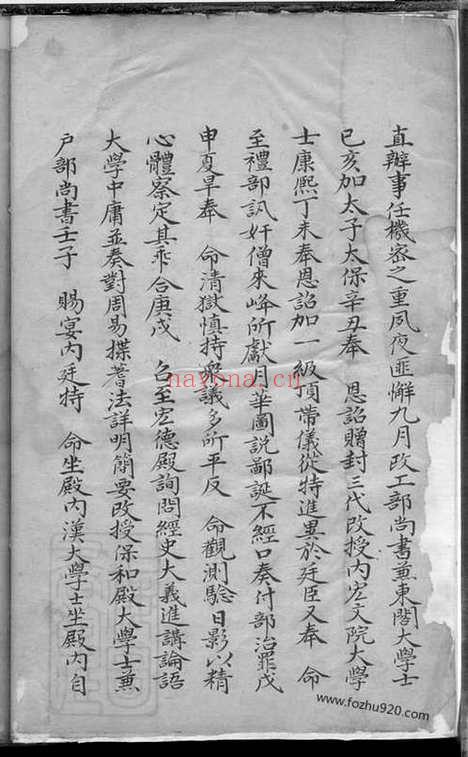 直辦事任機密之重夙夜匪懈九月改工部尚書兼東閣大學士
己亥加太子太保辛丑奉 恩詔贈封三代改授内宏文院大學
士康熙丁未奉恩詔加一級頂帶儀從特進異於廷臣又奉 命
至禮部訊奸僧來峰所獻月華圖說鄙誕不經口奏付部治罪戊
申夏旱奉 命清獄慎持衆議多所平反 命觀測驗日影以精
心體察定其乖合庚戌 召至宏德殿詢問經史大義進講論語
大學中庸並奏對周易揲蓍法詳明簡要改授保和殿大學士兼
戶部尚書壬子 賜宴内廷特 命坐殿内漢大學士坐殿内自
nayona.cn
www.fozhu920.com